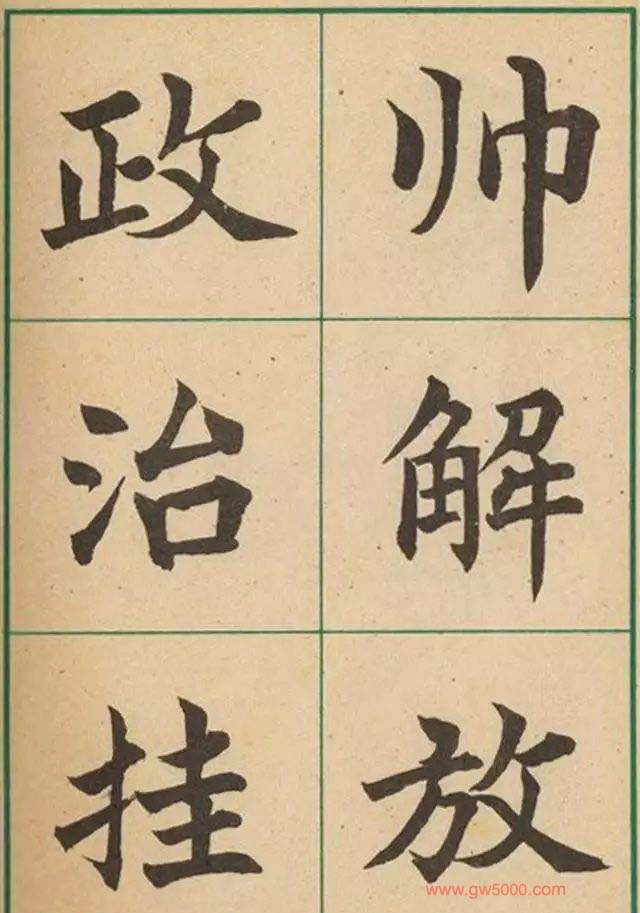 政治挂
帅解放
www.gw5000.com